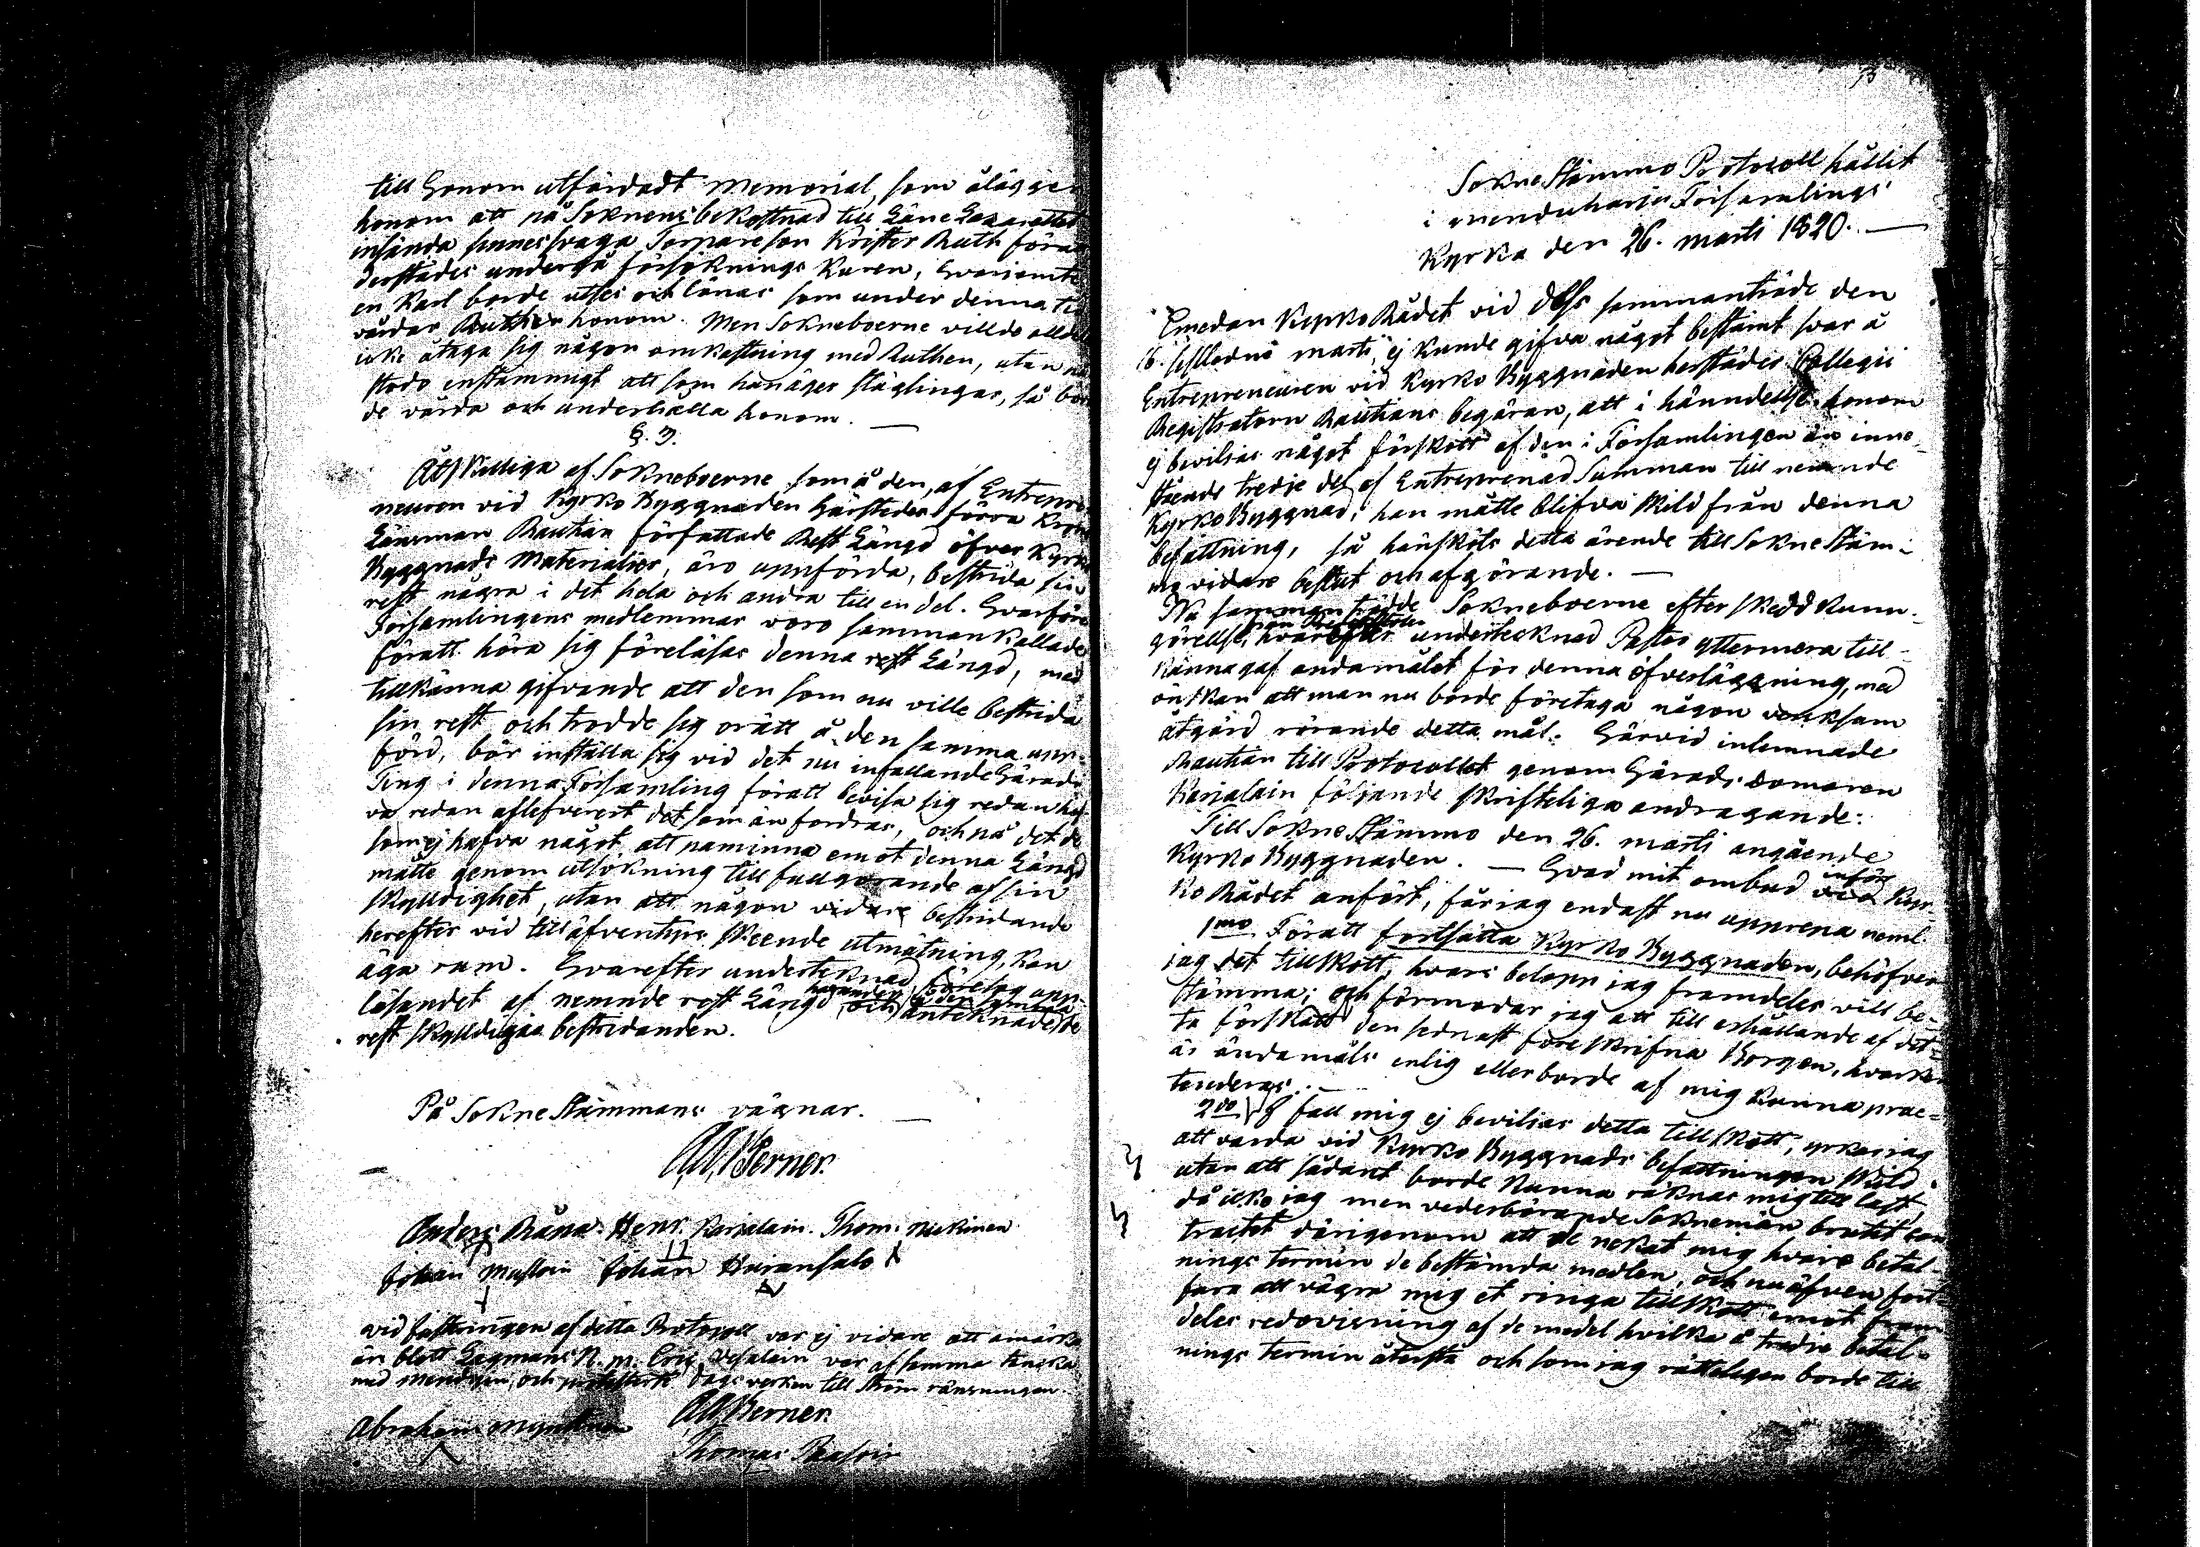 till honom utfärdadt Memorial, som ålägger
honom att på Soknens bekostnad till Läne Lazarettet
insända sinnessvaga Torpare son Krister Ruth föratt
derstädes undergå försöknings Kuren, hvarjemte
en Karl borde utses och lönas som under denna tid
vårdar honom. Men Sokneboerne villde alldeles
icke åtaga sig någon omkostning med Ruthen, utan
stodo enstämmigt att som han äger släglingar, så bör
de vårda och underhålla honom. —
§. 3.
Åtskilliga af Sokneboerne som å den, af Entrepre-
neuren vid Kyrko Byggnaden härstedes förra Krono
Länsman Bautian författade Rest Längd öfver Kyrko
Byggnads Materialier, äro uppförda, bestrida sin
rest några i det hela och andra till en del. Hvarföre
Församlingens medlemmar voro sammankallade
föratt höra sig föreläsas denna rest Längd, med
tillkänna gifvande att den som nu ville bestrida
sin rest och trodde sig orätt å den samma upp-
förd, bör inställa sig vid det nu infallande Härads
Ting i denna Församling föratt bevisa sig redan haf-
va redan aflefvererat det som än fordras, och på det de
som ej hafva något att påminna emot denna Längd
måtte genom utsökning till fullgörande af sin
skylldighet, utan att någon vidare bestridande
herefter vid till äfventyrs skeende utmätning, kan
äga rum. Hvarefter undertecknad företog upp-
läsandet af nemnde rest Längd och antecknade de
rest skylldigas bestridanden.
På Sokne Stämmans vägnar. —
Berner.
Anders Råna. Henr. Karjalain. Thom. Nukinen
Johan Mustoin Johan Huiransalo
vid justeringen af detta Protocoll var ej vidare att anmärka
än blott Lagmans N. M. Eric Vesalain var af samma tancka
med menigen, och protesterte dags verken till ström ränsningen.
Berner.
Abraham
Thomas Paasoin
Sokne Stämmo Protocoll hållit
i Menduharju Församlings
Kyrka den 26. Marti 1820. —
Emedan Kyrko Rådet vid dess sammanträde den
16. sistledne Marti, ej kunde gifva något bestämt svar å
Entrepreneuren vid Kyrko Byggnaden herstädes Collegii
Registratorn Bautians begäran, att i hänndelse honom
ej beviljas något förskott af den i Församlingen än inne-
stående tredje del af Entreprenad Summan till nemnde
Kyrko Byggnad, han måtte blifva skild från denna
befattning, så hänsköts detta ärende till Sokne Stäm-
mig vidare beslut och afgörande. —
Nu sammanträdde Sokneboerne efter skedd kunn-
görellse, hvarefter undertecknad Pastor yttermera till-
kännagaf andamålet för denna öfverläggning, med
önskan att man nu borde företaga någon verksam
åtgärd rörande detta mål: Härvid inlemnade
Bautian till Protocollet genom Härads domaren
Karjalain följande skriftliga andragande:
Till Sokne Stämmo den 26. Marti angående
Kyrko Byggnaden. — Hvad mit ombud inför Kyr-
ko Rådet anfört, får jag endast nu upprepa neml.
1mo Föratt fortsätta Kyrko Byggnaden, behöfver
jag det tillskott, hvars belopp jag framdeles vill be-
stämma; och förmodar jag att till erhållande af det-
ta förskott den sednast föreskrifna Borgen, hvarken
är ändamåls enlig eller borde af mig kunna præ-
tenderas. —
2do I fall mig ej beviljas detta tillskott, yrkar jag
att varda vid Kyrko Byggnads befattningen skild
utan att sådant borde kunna räknas mig till last,
då icke jag men vederbörande Soknemän brutit con-
tractet därigenom att de nekat mig hvars betal-
nings termin de bestämda medlen, och nu äfven fort-
fara att vägra mig et ringa tillskott emot fram-
deles redovisning af de medel hvilka å tredje betal-
nings termin återstå och som jag rätteligen borde till